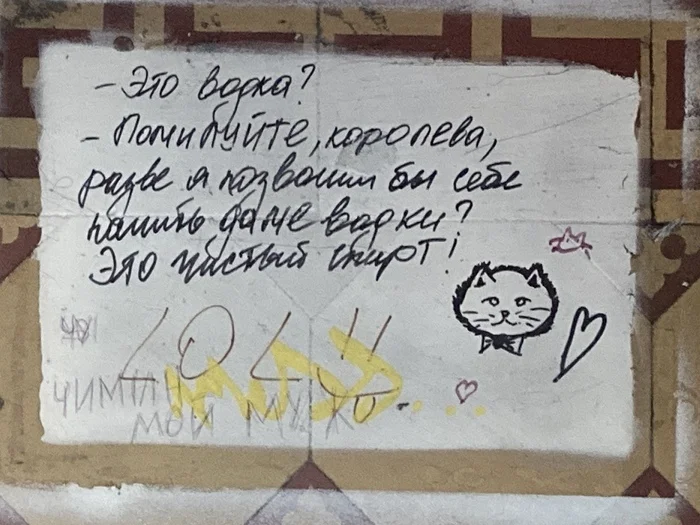 – Это водка?
– Помилуйте, королева,
разве я позволил бы себе
налить даме водки?
Это чистый спирт!
ЧИМИН
МОЙ МУЖ